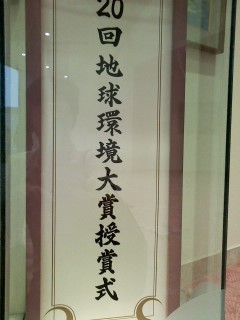 20回地球環境大賞授賞式